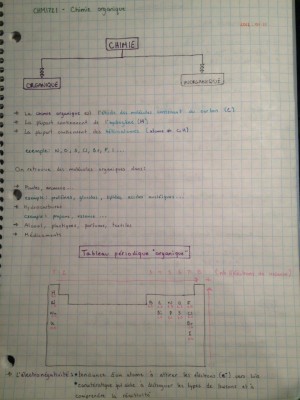 CHIM1821 - Chimie organique
CHIMIE
ORGANIQUE
INORGANIQUE
→ La chimie organique est l'étude des molécules contenant du carbone (C).
→ La plupart contiennent de l'hydrogène (H).
→ La plupart contiennent des hétéroatomes (atome ≠ C, H)
exemple: N, O, S, Cl, Br, F, I ...
On retrouve des molécules organiques dans:
→ Plantes, animaux ...
exemple: protéines, glucides, lipides, acides nucléiques ...
→ Hydrocarbures
exemple: propane, essence ...
→ Alcool, plastiques, parfums, textiles
→ Médicaments
Tableau périodique "organique"
H
B C N O F
Si P S Cl
Br
I
→ L'électronégativité: tendance d'un atome à attirer les électrons (e⁻) vers soi
caractéristique qui aide à distinguer les types de liaisons et à
comprendre la réactivité